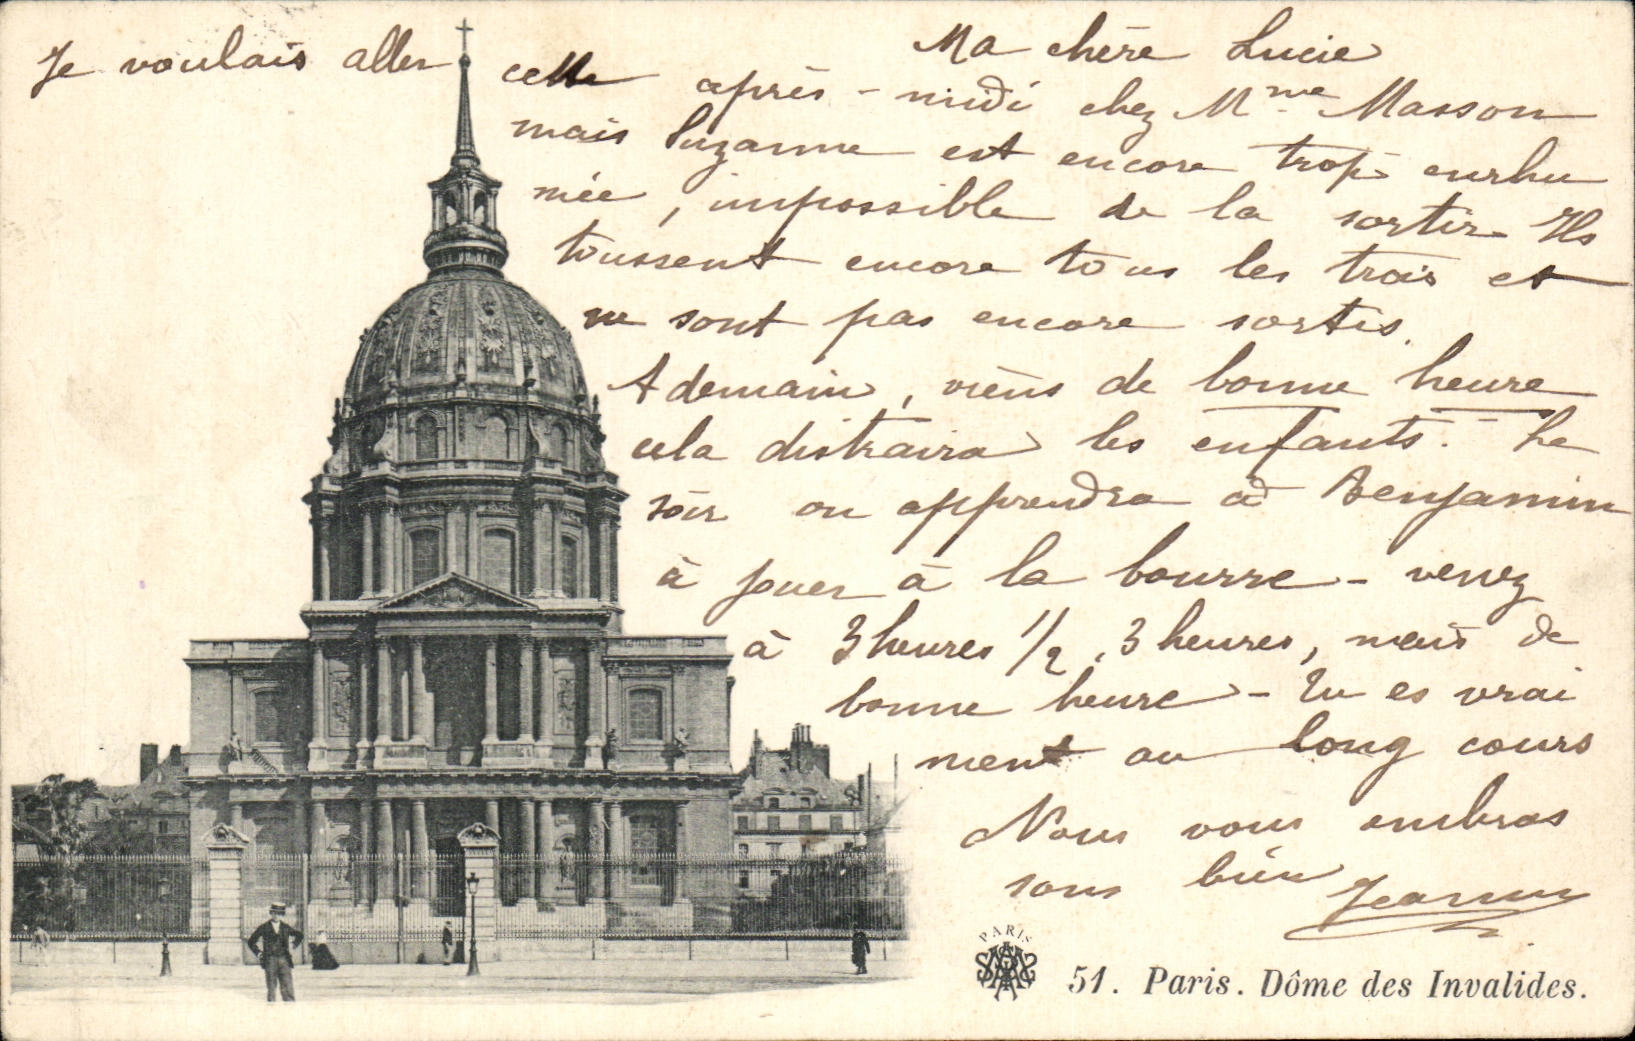 Ma chère Lucie
Je voulais aller cette après-midi chez Mme Masson
mais Suzanne est encore trop enrhu
mée, impossible de la sortir. Ils
toussent encore tous les trois et
ne sont pas encore sortis.
A demain, viens de bonne heure
cela distraira les enfants. - Le
soir on apprendra à Benjamin
à jouer à la bourre - venez
à 3 heures 1/2, 3 heures, mais de
bonne heure - Tu es vrai
ment au long cours
Nous vous embras
sons bien Jeanne
PARIS
51. Paris. Dôme des Invalides.